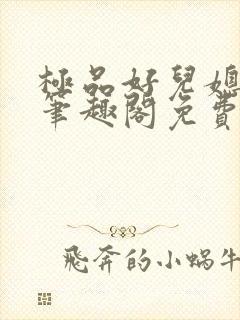 極品好兒媳
筆趣閣免費
飛奔的小蝸牛